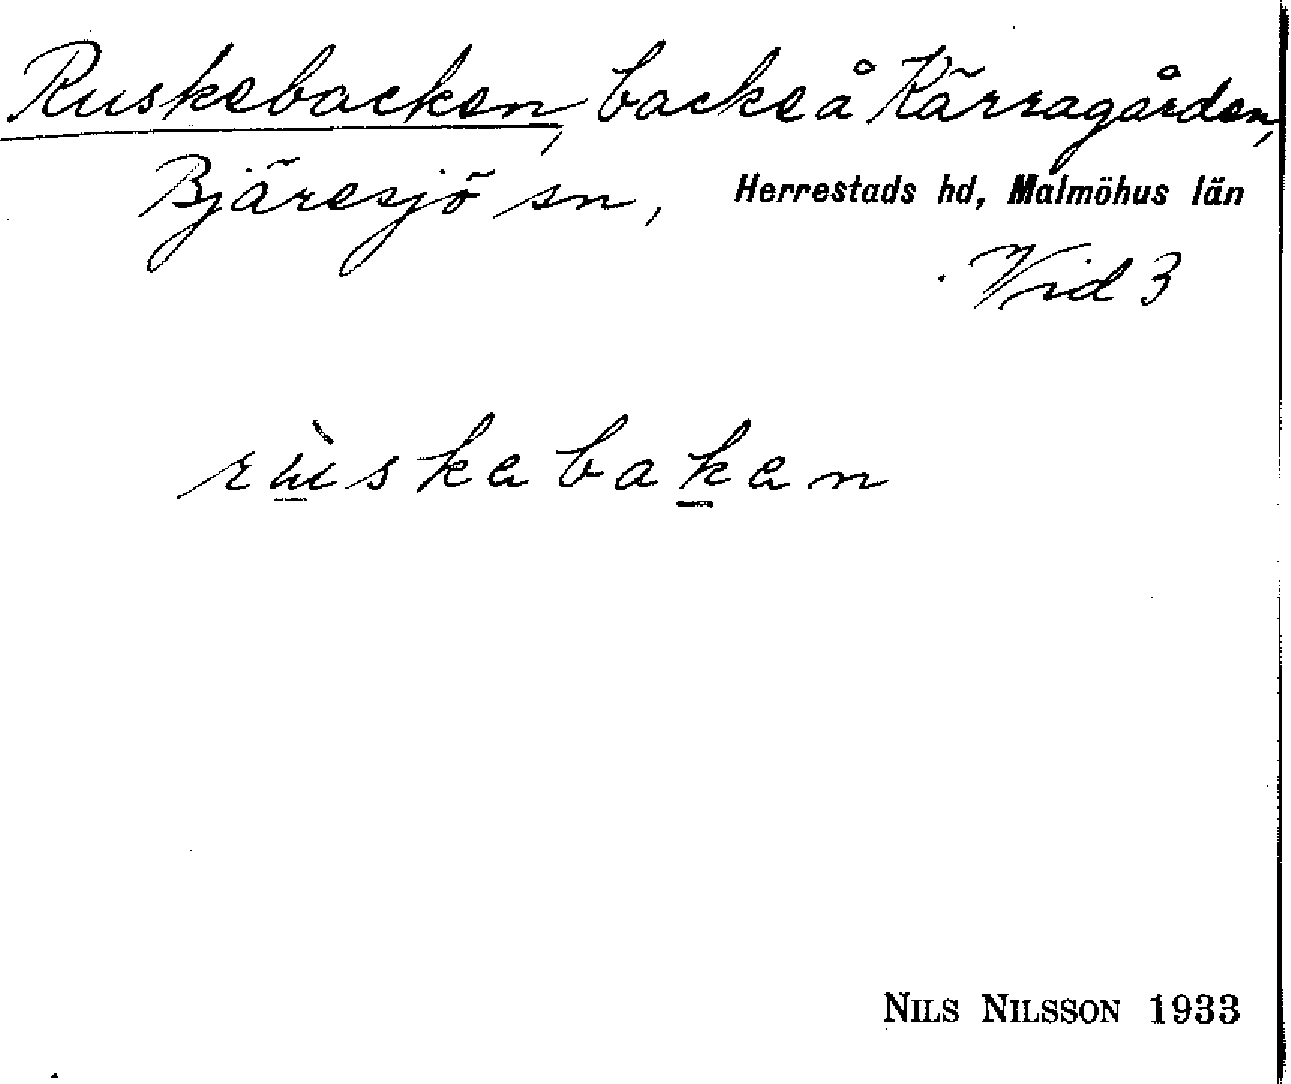 Ruskebacken, backe å Kärragården,
Bjäresjö sn, Herrestads hd, Malmöhus län
Vid 3
rùskabakan
NILS NILSSON 1933